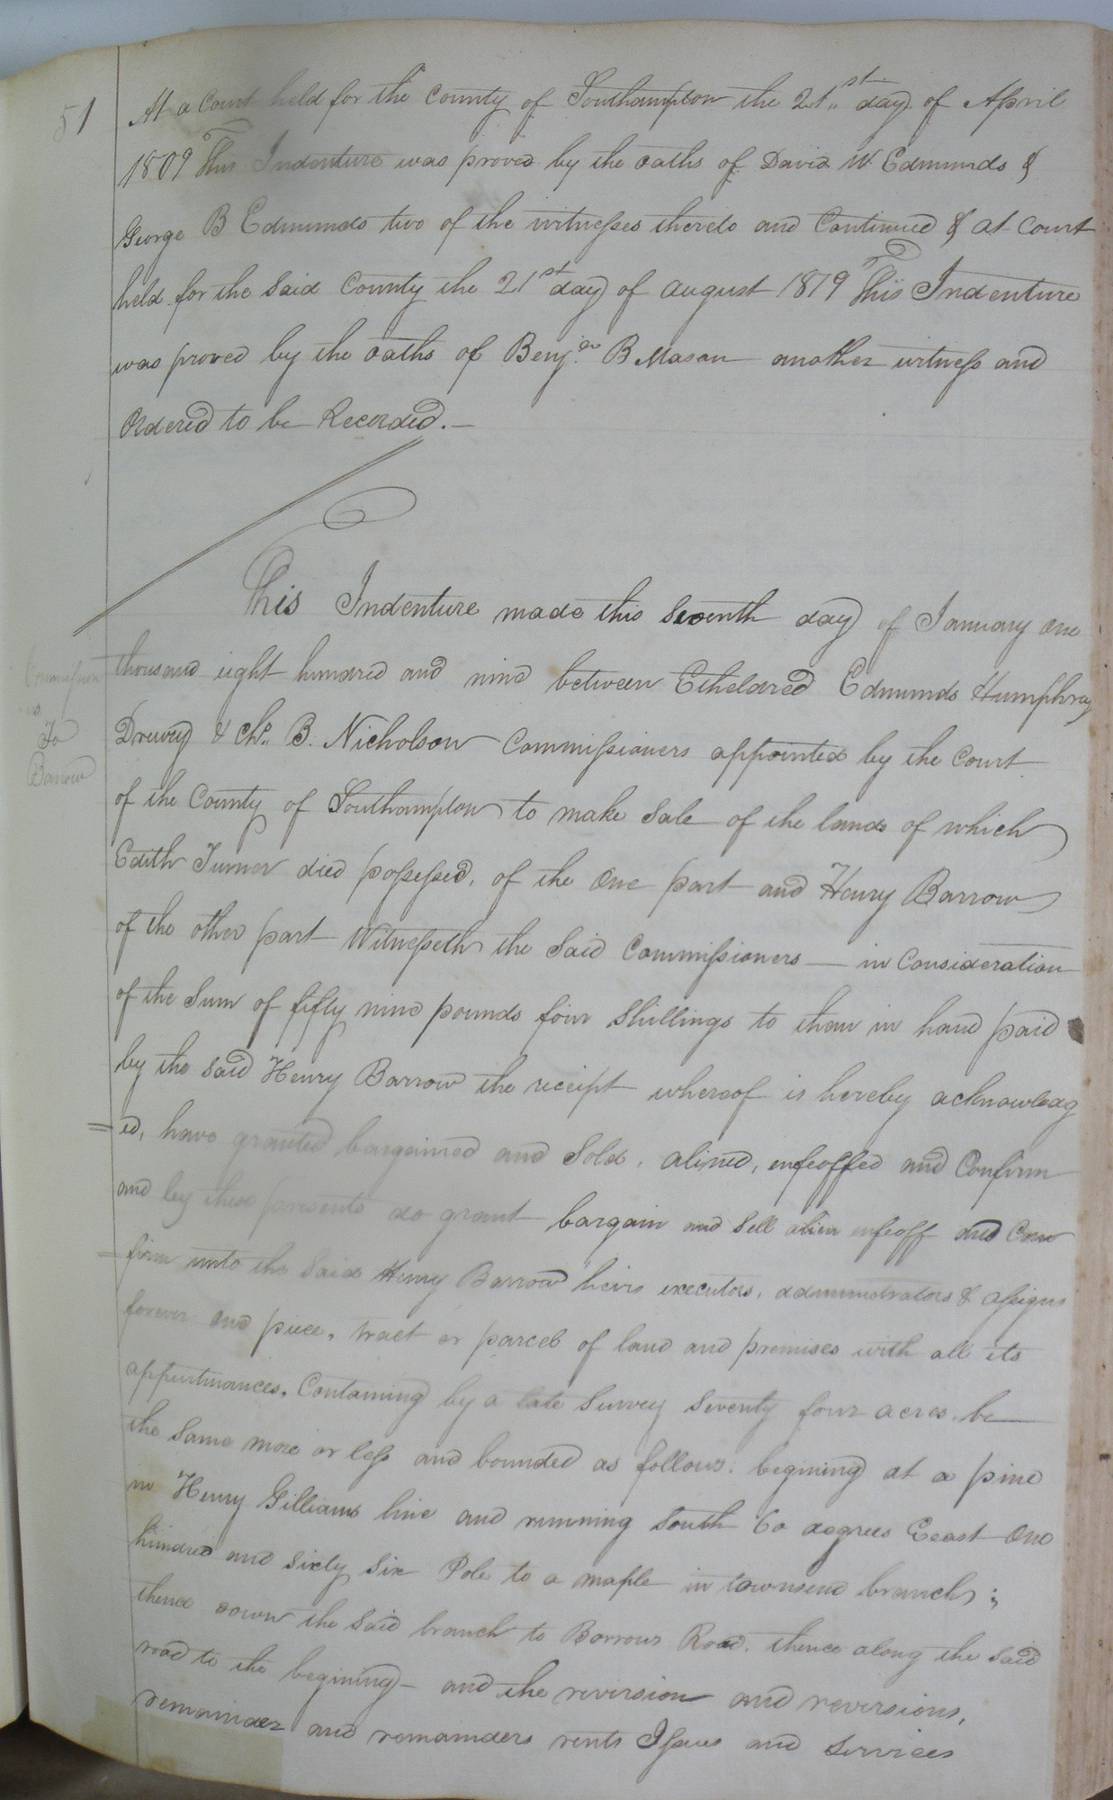 51
At a Court held for the County of Southampton the 21st day of April
1809 This Indenture was proved by the oaths of David W. Edmunds &
George B Edmunds two of the witnesses thereto and Continued & at Court
held for the Said County the 21st day of august 1819 This Indenture
was proved by the oaths of Benjan B Mason another witness and
Ordered to be Recorded.—
This Indenture made this Seventh day of January One
thousand eight hundred and nine between Etheldred Edmunds Humphrey
Commission
To
Barrow
Drewry & Chs. B. Nicholson Commissioners appointed by the Court
of the County of Southampton to make Sale of the lands of which
Edith Turner died possessed, of the One part and Henry Barrow
of the other part Witnesseth the Said Commissioners — in Consideration
of the Sum of fifty nine pounds four Shillings to them in hand paid
by the said Henry Barrow the receipt whereof is hereby acknowledg
=ed, have granted bargained and Sold, alined, enfeoffed and Confirm
and by these presents do grant bargain and Sell alien enfeoff and Con
=firm unto the Said Henry Barrow heirs executors, administrators & assigns
forever and piece, tract or parcel of land and premises with all its
appurtinances, Containing by a late Survey Seventy four acres, be
the Same more or less and bounded as follows. begining at a pine
in Henry Gilliams line and running South 60 degrees Eeast One
hundred and Sixty Six Pole to a maple in townsend branch;
thence down the Said branch to Borrows Road. thence along the Said
road to the begining — and the reversion and reversions,
remainder and remainders rents Issues and Services